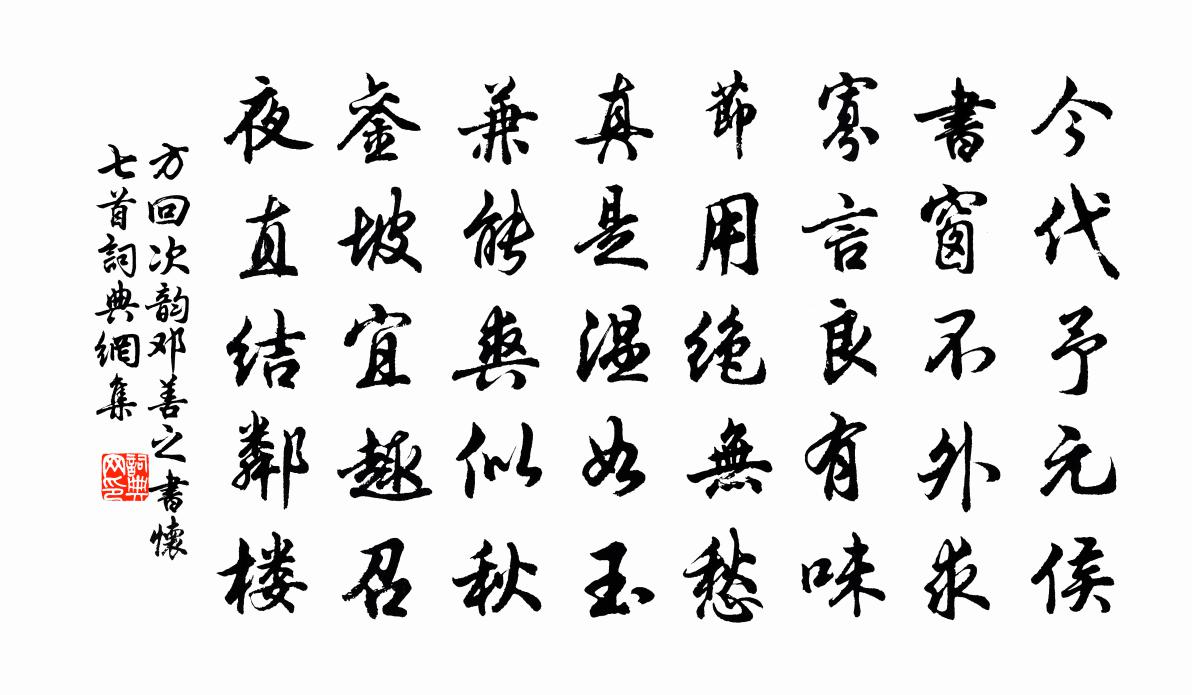 今代予元侯
書窗不外求
寡言良有味
節用绝無愁
真是温如玉
兼能爽似秋
銮坡宜趣召
夜直结鄰楼
方回次韵邓善之書懷
七首詞典網集
詞典
网印